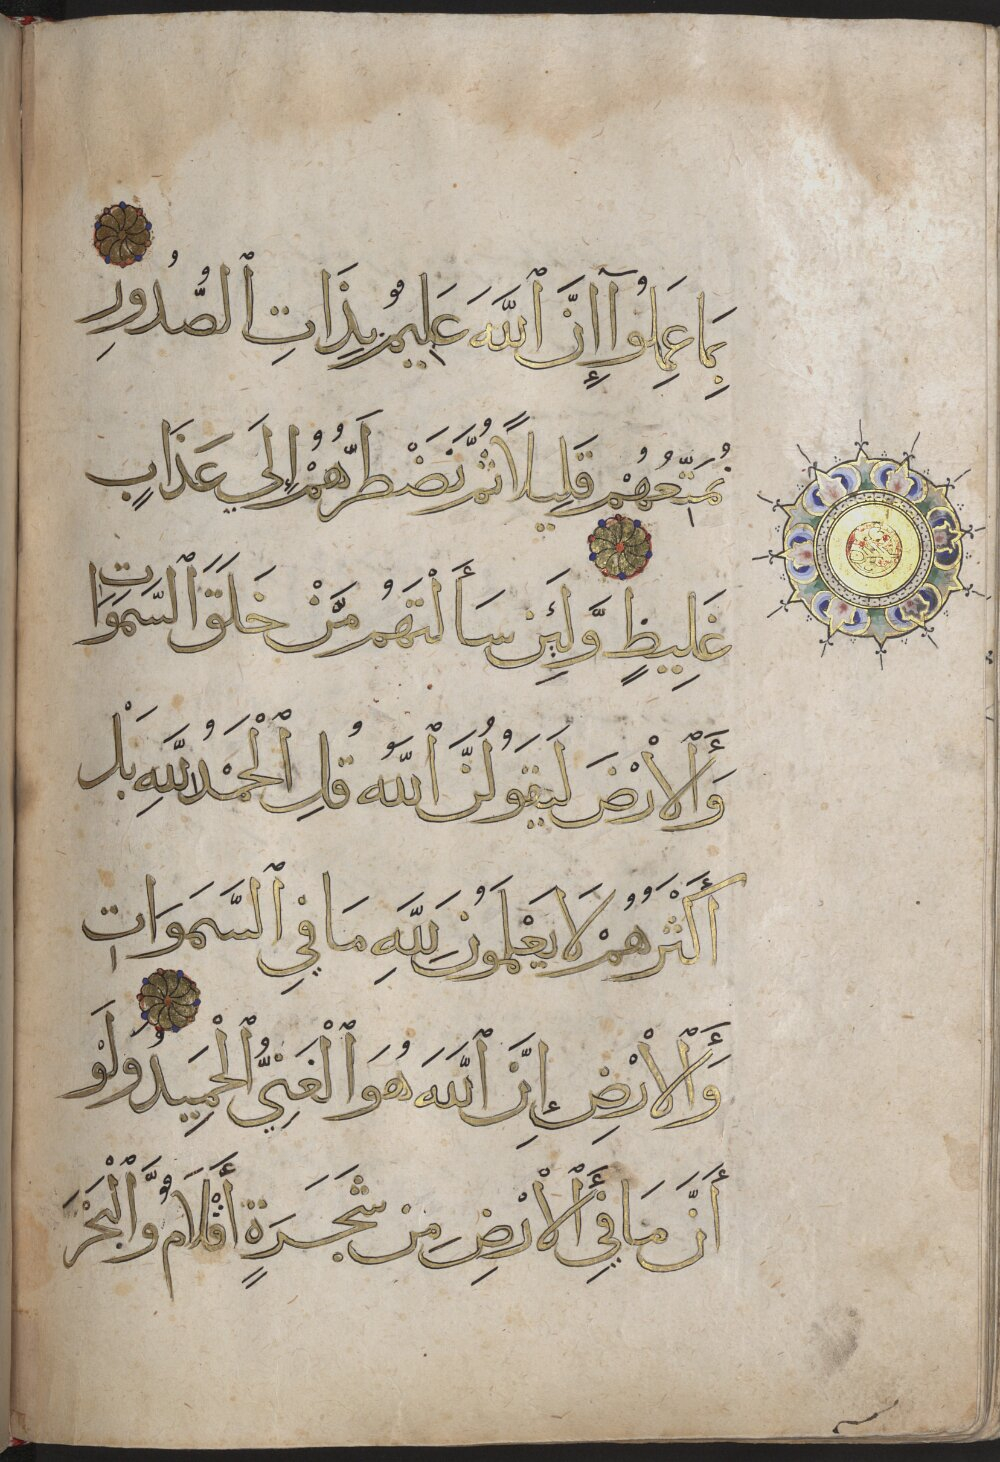 بِمَا عَمِلُوٓا۟ إِنَّ ٱللَّهَ عَلِيمُۢ بِذَاتِ ٱلصُّدُورِ
نُمَتِّعُهُمْ قَلِيلًا ثُمَّ نَضْطَرُّهُمُۥٓ إِلَىٰ عَذَابٍ
غَلِيظٍ وَّلَئِن سَأَلْتَهُم مَّنْ خَلَقَ ٱلسَّمَوَاتِ
وَٱلْأَرْضَ لَيَقُولُنَّ ٱللَّهُ قُلِ ٱلْحَمْدُ لِلَّهِ بَلْ
أَكْثَرُهُمْ لَا يَعْلَمُونَ لِلَّهِ مَا فِي ٱلسَّمَوَاتِ
وَٱلْأَرْضِ إِنَّ ٱللَّهَ هُوَ ٱلْغَنِيُّ ٱلْحَمِيدُ وَلَوْ
أَنَّ مَا فِي ٱلْأَرْضِ مِن شَجَرَةٍ أَقْلَامٌ وَّٱلْبَحْرَ